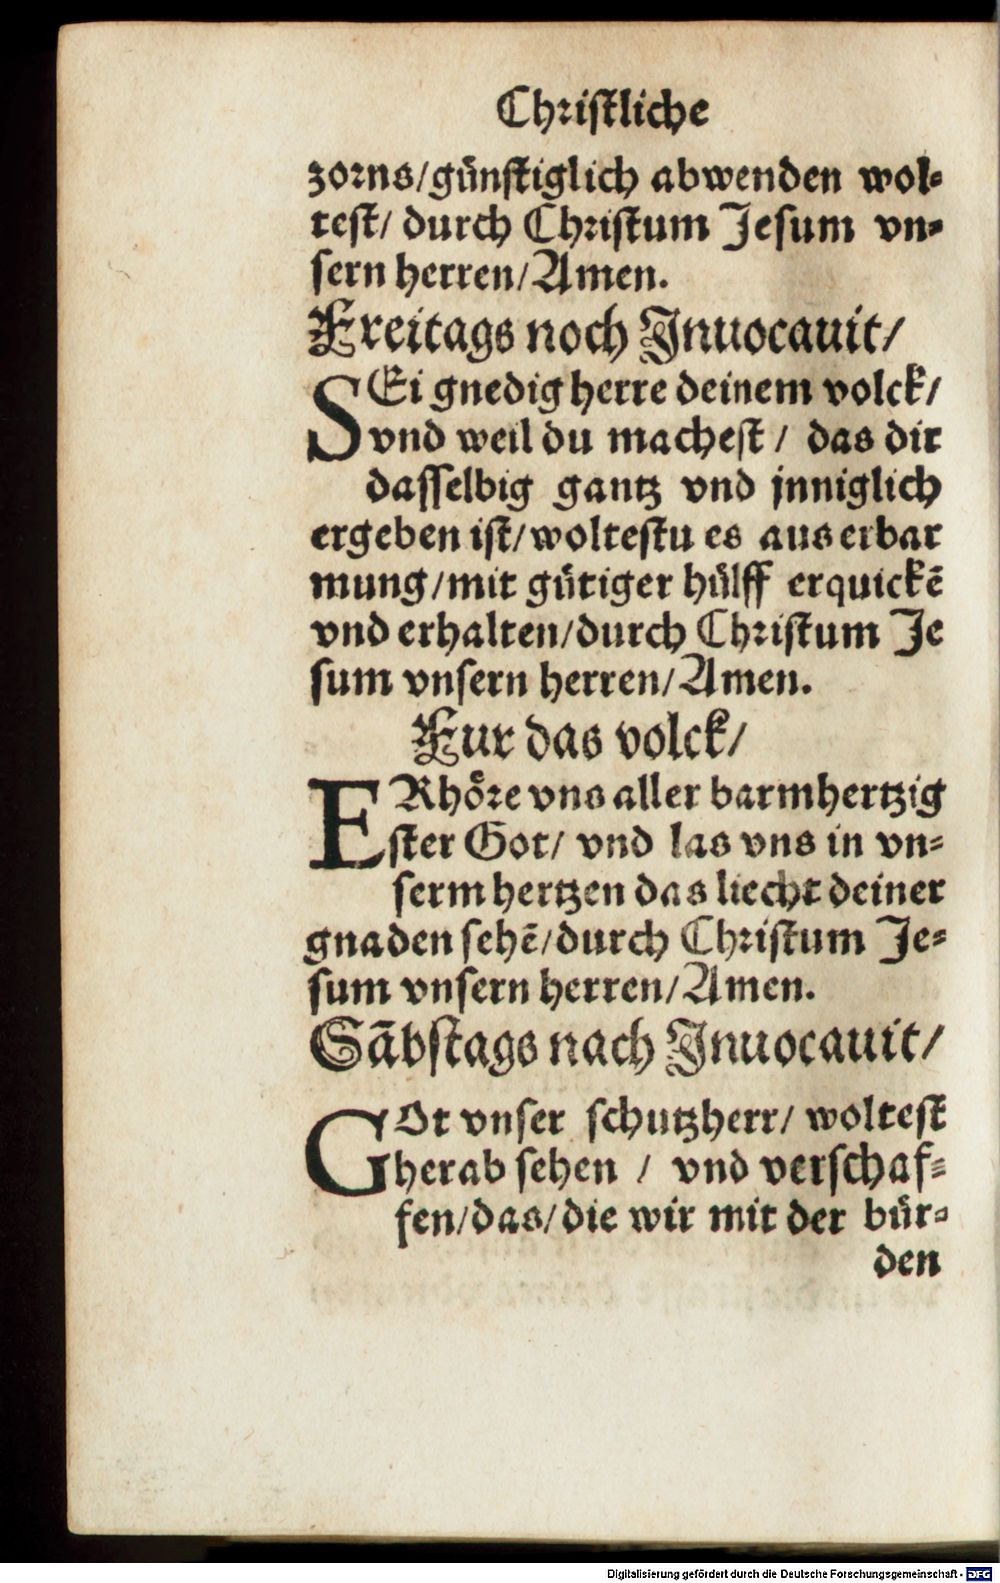 Christliche
zorns/günstiglich abwenden wol-
test/ durch Christum Jesum vn-
sern herren/Amen.
Freitags noch Inuocauit/
SEi gnedig herre deinem volck/
vnd weil du machest / das dir
dasselbig gantz vnd jnniglich
ergeben ist/woltestu es aus erbar
mung/mit gütiger hülff erquickē
vnd erhalten/durch Christum Je
sum vnsern herren/Amen.
Fur das volck/
ERhöre vns aller barmhertzig
ster Got/ vnd las vns in vn-
serm hertzen das liecht deiner
gnaden sehē/durch Christum Je-
sum vnsern herren/Amen.
Sābstags nach Inuocauit/
GOt vnser schutzherr/ woltest
herab sehen / vnd verschaf-
fen/das/die wir mit der bür-
den
Digitalisierung gefördert durch die Deutsche Forschungsgemeinschaft - DFG